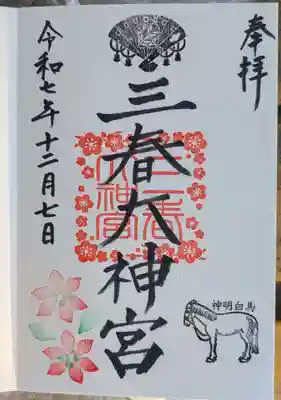 奉拝
三春大神宮
三春大神宮
令和七年十二月七日
神明白馬